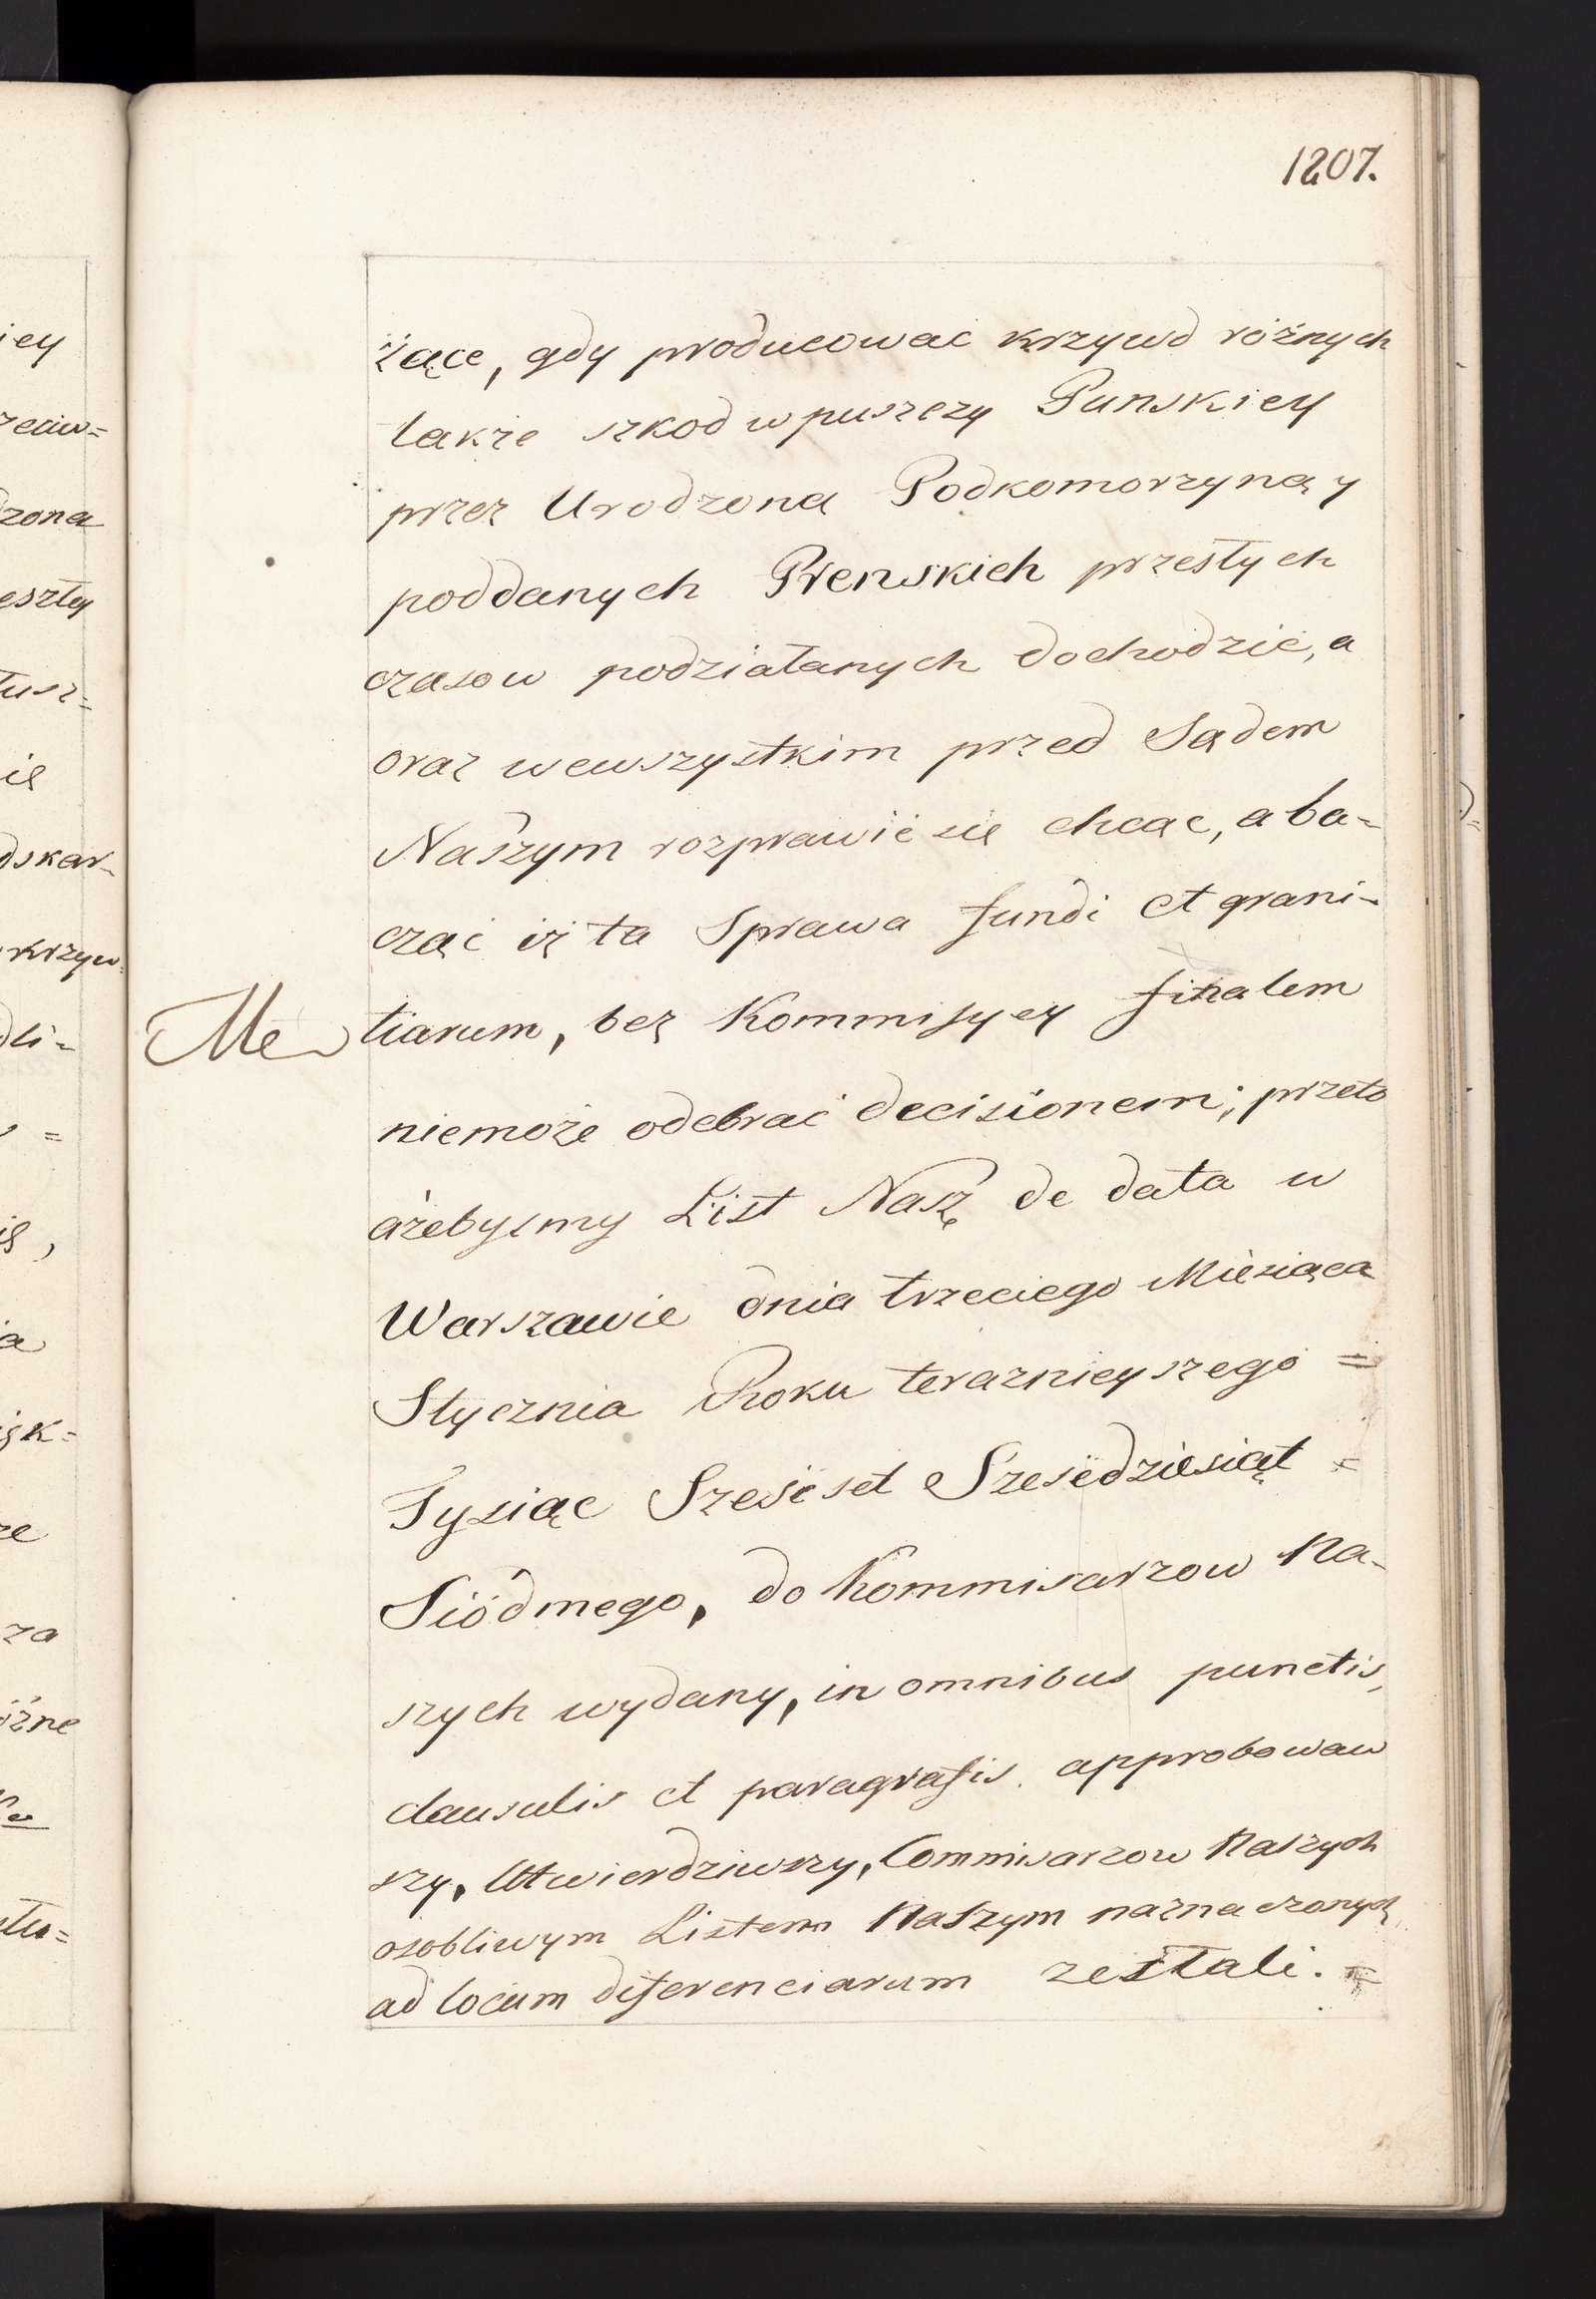 1207.
żące, gdy producować krzywd różnych
także szkod w puszczy Punskiey
przez Urodzona Podkomorzyną y
poddanych Prenskich przestych
czasow podziałanych dochodzić, a
oraz wewszystkim przed Sądem
Naszym rozprawić się chcąc, a ba-
cząc iż ta Sprawa fundi et grani-
Me
tiarum, bez Kommisyey finalem
niemoże odebrać decisionem; przeto
ażebysmy List Nasz de data w
Warszawie dnia trzeciego Miesiąca
Stycznia Roku teraznieyszego =
Tysiąc Szeséset Szesédziesiąt =
Siódmego, do Kommisarzow Na-
szych wydany, in omnibus punctis,
clausulis et paragrafis approbowaw
szy, Utwierdziwszy, Commisarzow Naszych
osobliwym Listem Naszym naznaczonych,
ad locum diferenciarum zesłali. =
iey
rzeciw=
dzona
eszłey
łusz=
ię
dskar-
krzyw=
dli-
=
ię,
ia
ięk=
że
za
óżne
stu=